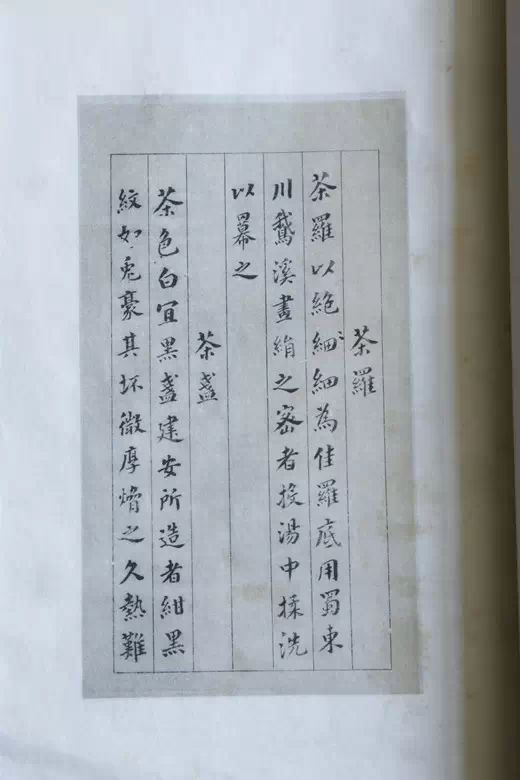 茶羅
茶羅以絶細細為佳羅底用蜀東
川鵝溪畫絹之密者投湯中揉洗
以羃之
茶盞
茶色白宜黑盞建安所造者紺黑
紋如兎豪其坯微厚熁之久熱難